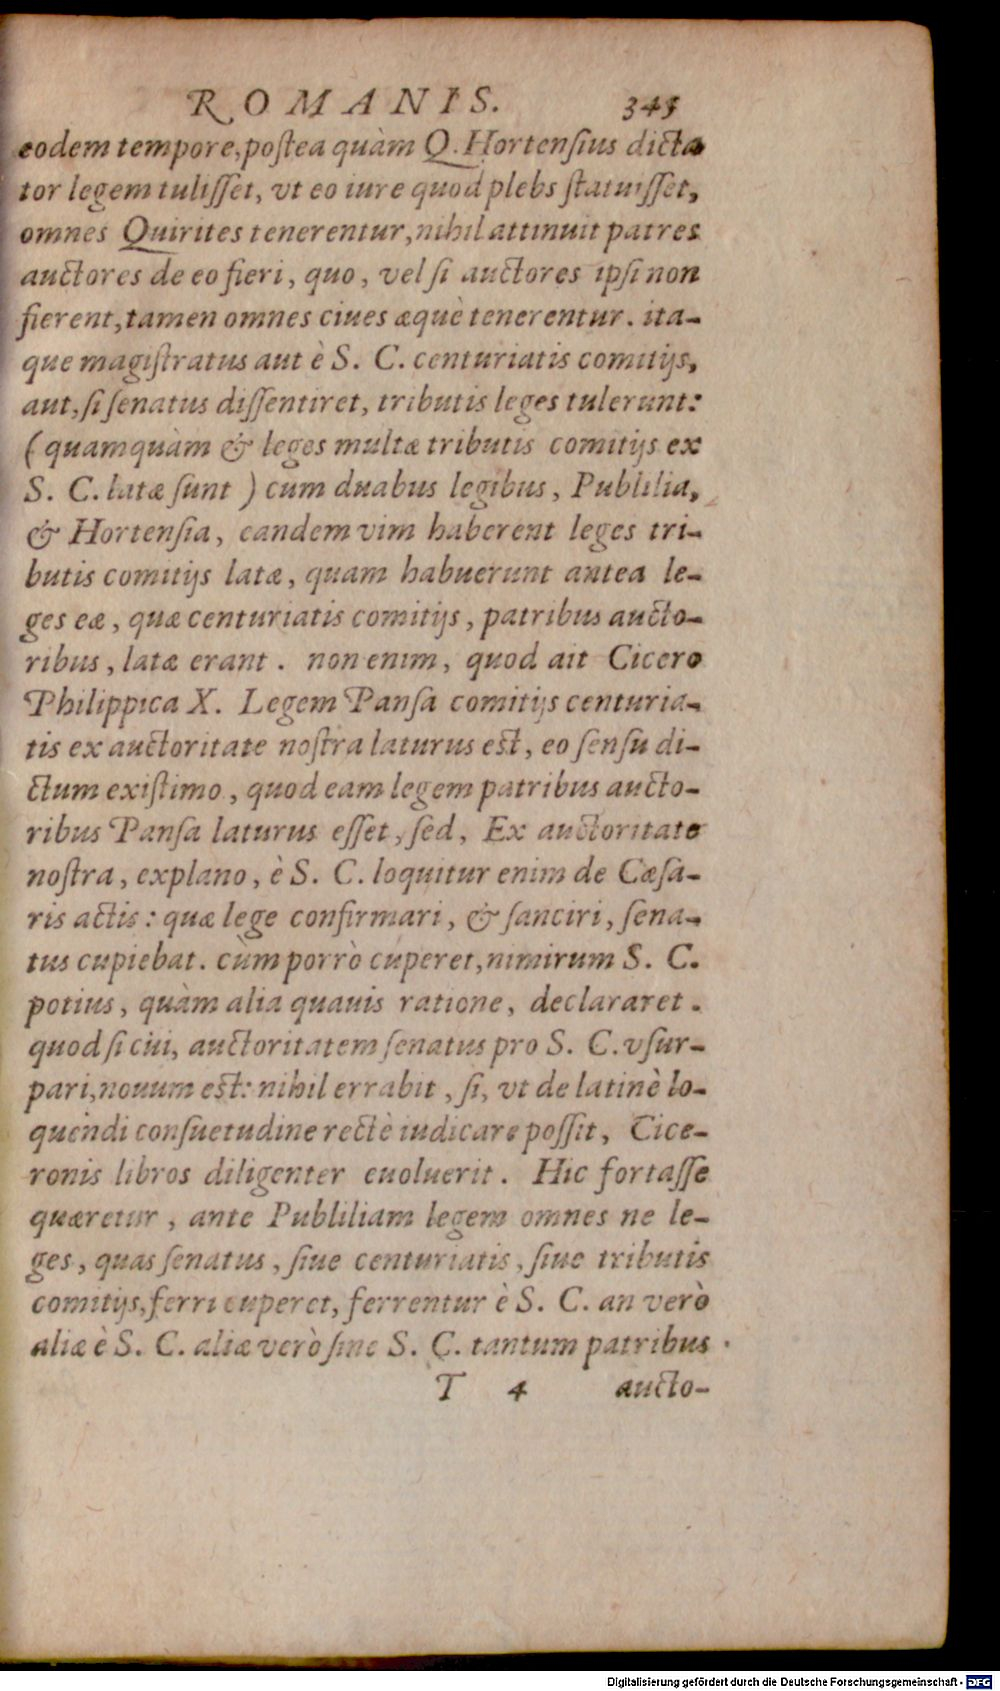 ROMANIS. 343
eodem tempore, postea quàm Q. Hortensius dicta
tor legem tulisset, vt eo iure quod plebs statuisset,
omnes Quirites tenerentur, nihil attinuit patres
auctores de eo fieri, quo, vel si auctores ipsi non
fierent, tamen omnes ciues æquè tenerentur. ita-
que magistratus aut è S. C. centuriatis comitijs,
aut, si senatus dissentiret, tributis leges tulerunt:
(quamquàm & leges multæ tributis comitijs ex
S. C. latæ sunt ) cum duabus legibus, Publilia,
& Hortensia, eandem vim haberent leges tri-
butis comitijs latæ, quam habuerunt antea le-
ges eæ, quæ centuriatis comitijs, patribus aucto-
ribus, latæ erant. non enim, quod ait Cicero
Philippica X. Legem Pansa comitijs centuria-
tis ex auctoritate nostra laturus est, eo sensu di-
ctum existimo, quod eam legem patribus aucto-
ribus Pansa laturus esset, sed, Ex auctoritate
nostra, explano, è S. C. loquitur enim de Cæsa-
ris actis: quæ lege confirmari, & sanciri, sena-
tus cupiebat. cùm porrò cuperet, nimirum S. C.
potius, quàm alia quauis ratione, declararet.
quod si cui, auctoritatem senatus pro S. C. vsur-
pari, nouum est: nihil errabit, si, vt de latinè lo-
quendi consuetudine rectè iudicare possit, Cice-
ronis libros diligenter euoluerit. Hic fortasse
quæretur, ante Publiliam legem omnes ne le-
ges, quas senatus, siue centuriatis, siue tributis
comitijs, ferri cuperet, ferrentur è S. C. an verò
aliæ è S. C. aliæ verò sine S. C. tantum patribus
T 4 aucto-
Digitalisierung gefördert durch die Deutsche Forschungsgemeinschaft - DFG